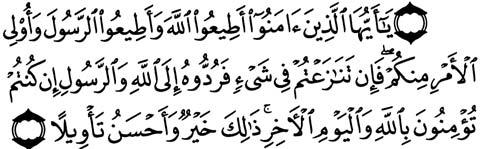 يَٰٓأَيُّهَا ٱلَّذِينَ ءَامَنُوٓا۟ أَطِيعُوا۟ ٱللَّهَ وَأَطِيعُوا۟ ٱلرَّسُولَ وَأُو۟لِى
ٱلْأَمْرِ مِنكُمْ ۖ فَإِن تَنَٰزَعْتُمْ فِى شَىْءٍ فَرُدُّوهُ إِلَى ٱللَّهِ وَٱلرَّسُولِ إِن كُنتُمْ
تُؤْمِنُونَ بِٱللَّهِ وَٱلْيَوْمِ ٱلْءَاخِرِ ۚ ذَٰلِكَ خَيْرٌ وَأَحْسَنُ تَأْوِيلًا